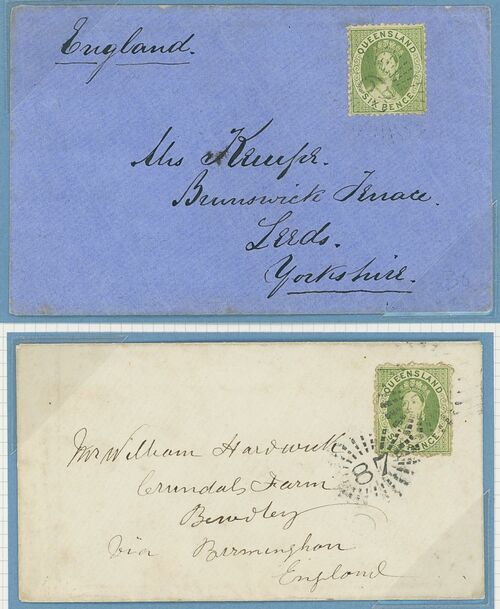 England.
QUEENSLAND
SIX PENCE
Mrs Kempe.
Brunswick Terrace.
Leeds.
Yorkshire.
QUEENSLAND
PENCE
87
Mr William Hardwick
Crundals Farm
Bewdley
Via Birmingham
England